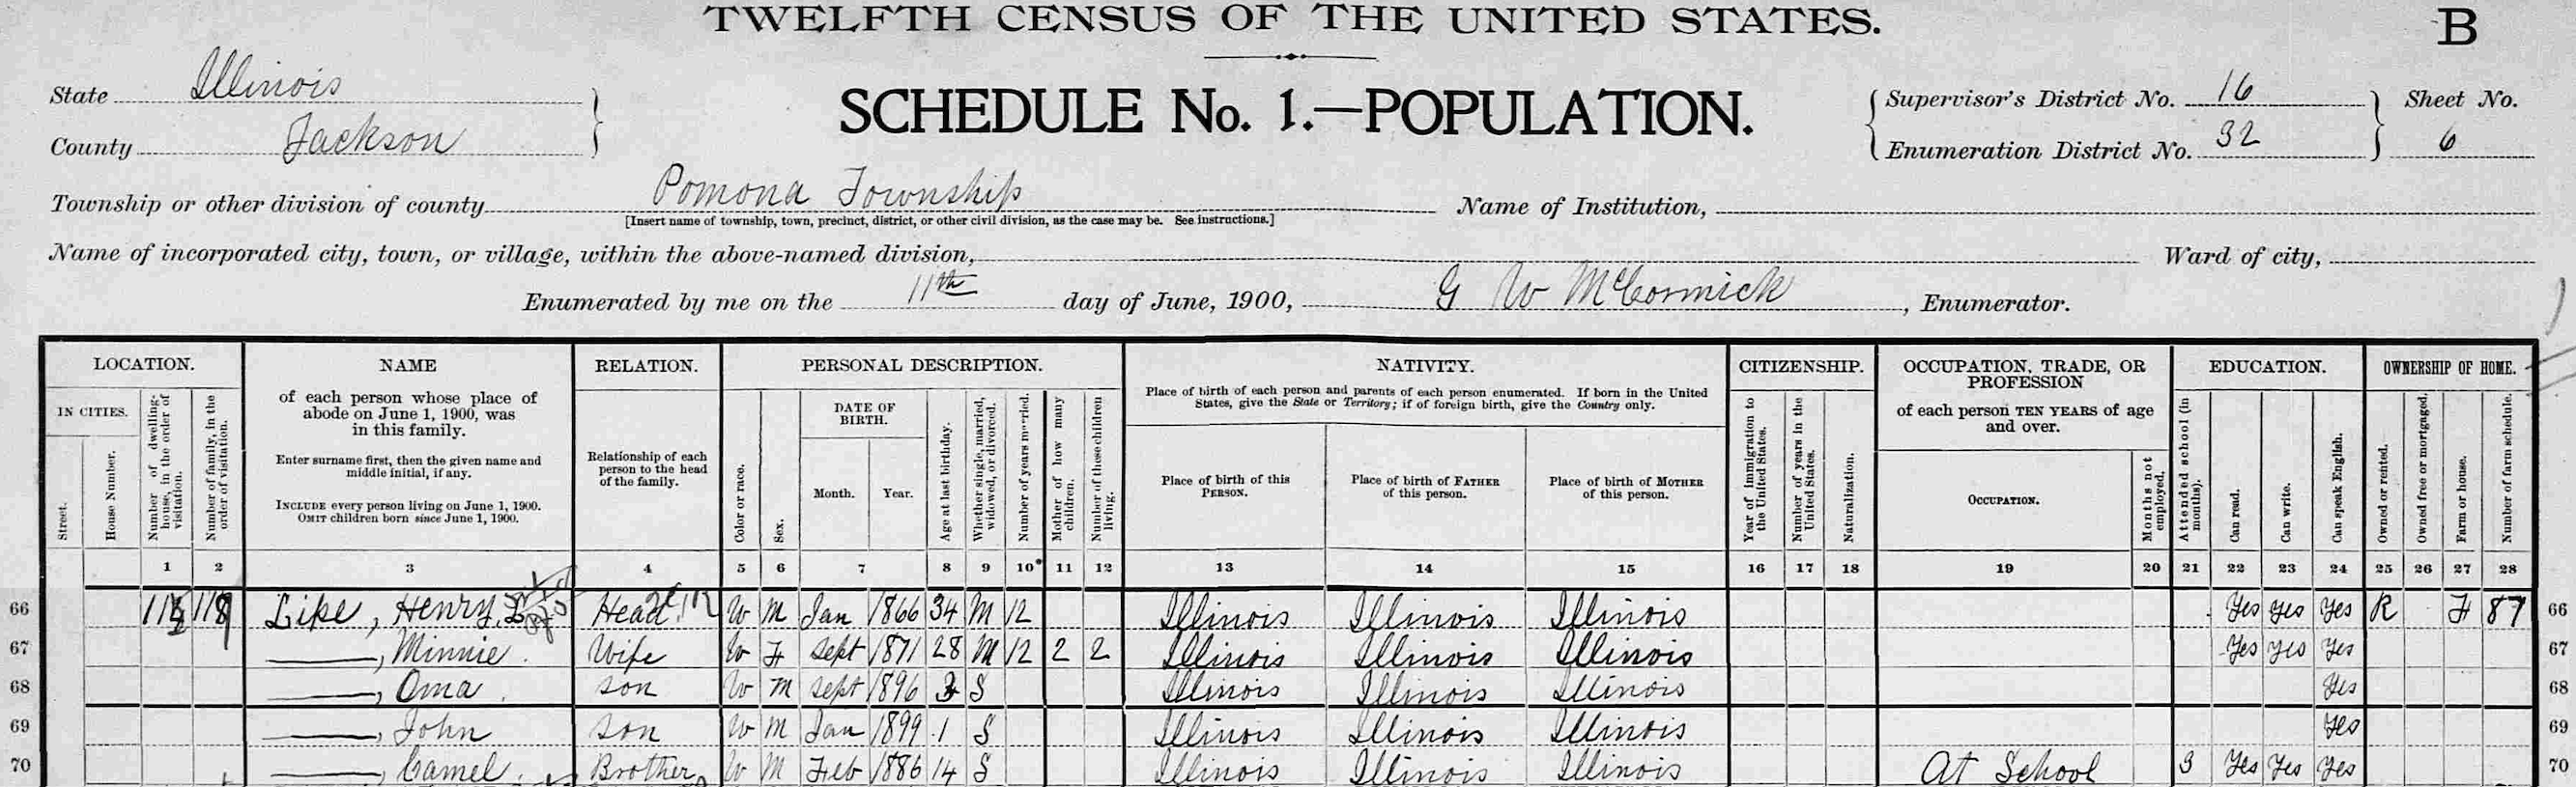 TWELFTH CENSUS OF THE UNITED STATES.
B
State Illinois
County Jackson
SCHEDULE No. 1.—POPULATION.
Supervisor's District No. 16
Enumeration District No. 32
Sheet No.
6
Township or other division of county Pomona Township
[Insert name of township, town, precinct, district, or other civil division, as the case may be. See instructions.]
Name of Institution,
Name of incorporated city, town, or village, within the above-named division,
Ward of city,
Enumerated by me on the 11th day of June, 1900, G W McCormick, Enumerator.
LOCATION.
IN CITIES.
Street.
House Number.
Number of dwelling-house, in the order of visitation.
Number of family, in the order of visitation.
NAME
of each person whose place of
abode on June 1, 1900, was
in this family.
Enter surname first, then the given name and
middle initial, if any.
INCLUDE every person living on June 1, 1900.
OMIT children born since June 1, 1900.
RELATION.
Relationship of each
person to the head
of the family.
PERSONAL DESCRIPTION.
Color or race.
Sex.
DATE OF
BIRTH.
Month. Year.
Age at last birthday.
Whether single, married, widowed, or divorced.
Number of years married.
Mother of how many children.
Number of these children living.
NATIVITY.
Place of birth of each person and parents of each person enumerated. If born in the United
States, give the State or Territory; if of foreign birth, give the Country only.
Place of birth of this
PERSON.
Place of birth of FATHER
of this person.
Place of birth of MOTHER
of this person.
CITIZENSHIP.
Year of immigration to the United States.
Number of years in the United States.
Naturalization.
OCCUPATION, TRADE, OR
PROFESSION
of each person TEN YEARS of age
and over.
OCCUPATION.
Months not employed.
EDUCATION.
Attended school (in months).
Can read.
Can write.
Can speak English.
OWNERSHIP OF HOME.
Owned or rented.
Owned free or mortgaged.
Farm or house.
Number of farm schedule.
1 2 3 4 5 6 7 8 9 10 11 12 13 14 15 16 17 18 19 20 21 22 23 24 25 26 27 28
66 Lipe, Henry Head W M Jan 1866 34 M 12 Illinois Illinois Illinois Yes Yes Yes R F 87 66
67 ——, Minnie Wife W F Sept 1871 28 M 12 2 2 Illinois Illinois Illinois Yes Yes Yes 67
68 ——, Oma son W M Sept 1896 3 S Illinois Illinois Illinois Yes 68
69 ——, John son W M Jan 1899 1 S Illinois Illinois Illinois Yes 69
70 ——, Camel Brother W M Feb 1886 14 S Illinois Illinois Illinois At School 3 Yes Yes Yes 70